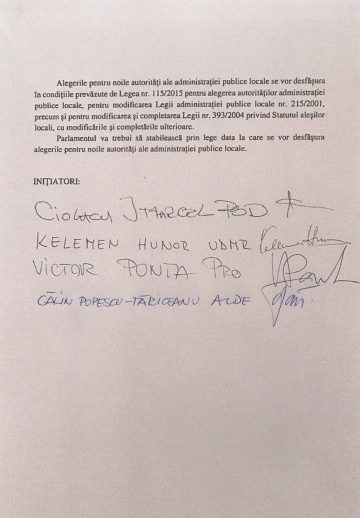 Alegerile pentru noile autorități ale administrației publice locale se vor desfășura
în condițiile prevăzute de Legea nr. 115/2015 pentru alegerea autorităților administrației
publice locale, pentru modificarea Legii administrației publice locale nr. 215/2001,
precum și pentru modificarea și completarea Legii nr. 393/2004 privind Statutul aleșilor
locali, cu modificările și completările ulterioare.
Parlamentul va trebui să stabilească prin lege data la care se vor desfășura
alegerile pentru noile autorități ale administrației publice locale.
INIȚIATORI:
CIOLACU I MARCEL PSD
KELEMEN HUNOR UDMR
VICTOR PONTA PRO
CĂLIN POPESCU-TĂRICEANU ALDE